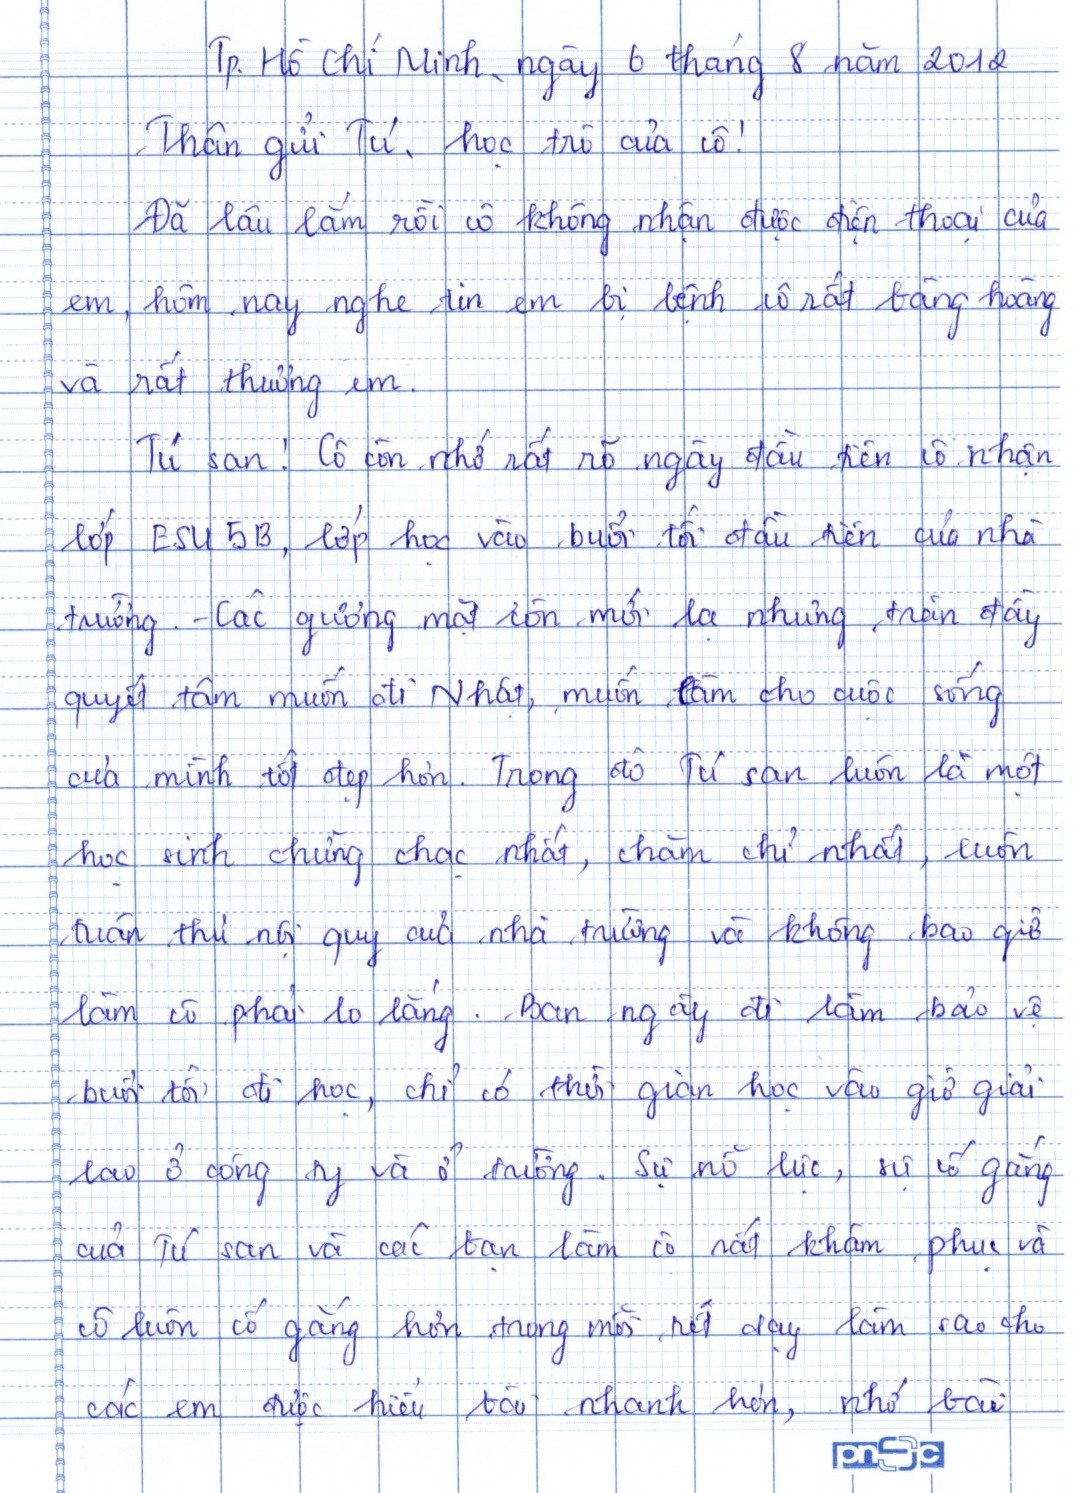 Tp. Hồ Chí Minh, ngày 6 tháng 8 năm 2012
Thân gửi Tú, học trò của cô!
Đã lâu lắm rồi cô không nhận được điện thoại của
em, hôm nay nghe tin em bị bệnh cô rất bàng hoàng
và rất thương em.
Tú san! Cô còn nhớ rất rõ ngày đầu tiên cô nhận
lớp ESU 5B, lớp học vào buổi tối đầu tiên của nhà
trường. - Các gương mặt còn mới lạ nhưng tràn đầy
quyết tâm muốn đi Nhật, muốn làm cho cuộc sống
của mình tốt đẹp hơn. Trong đó Tú san luôn là một
học sinh chững chạc nhất, chăm chỉ nhất, luôn
tuân thủ nội quy của nhà trường và không bao giờ
làm cô phải lo lắng. Ban ngày đi làm bảo vệ
buổi tối đi học, chỉ có thời gian học vào giờ giải
lao ở công ty và ở trường. Sự nỗ lực, sự cố gắng
của Tú san và các bạn làm cô rất khâm phục và
cô luôn cố gắng hơn trong mỗi tiết dạy làm sao cho
các em được hiểu bài nhanh hơn, nhớ bài
pnsc